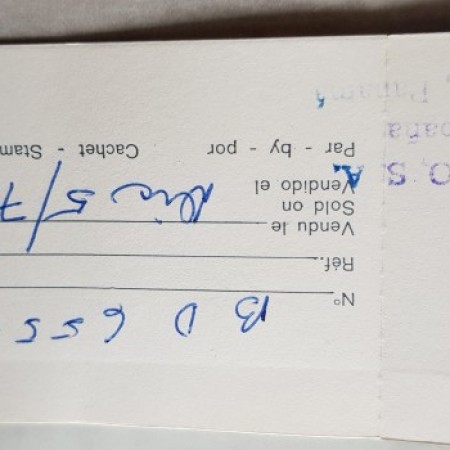 Nº B D 655
Réf.
Vendu le
Sold on Dic 5/7
Vendido el
Par - by - por Cachet - Stam
O, S. A.
paña